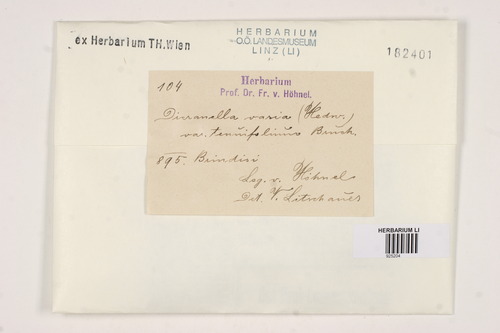 ex Herbarium TH.Wien
HERBARIUM
O.Ö. LANDESMUSEUM
LINZ (LI)
182401
104
Herbarium
Prof. Dr. Fr. v. Höhnel.
Dicranella varia (Hedw.)
va. tenuifolium Bruch.
895. Brindisi
Leg. v. Höhnel
Det. V. Litschauer
HERBARIUM LI
925204